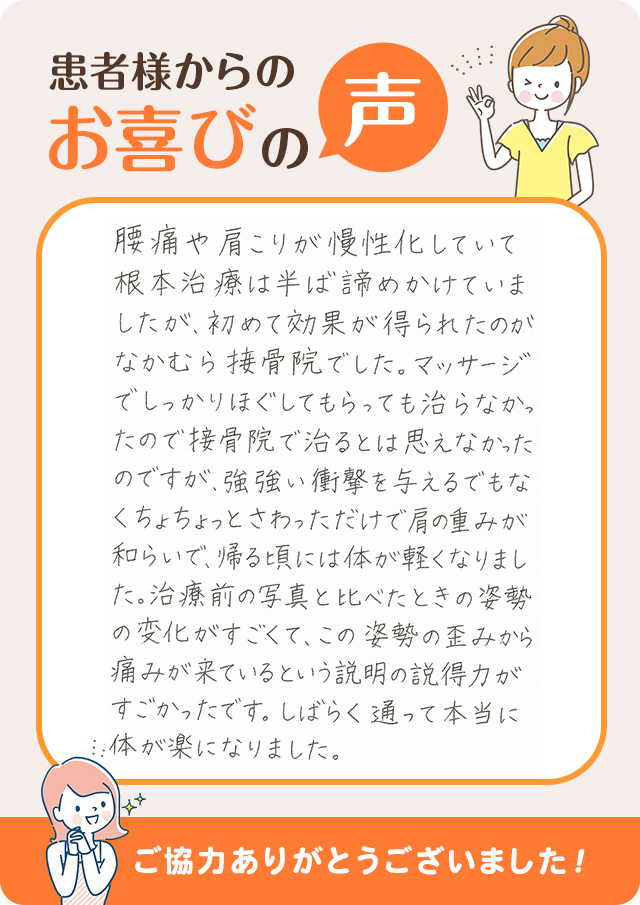 患者様からの
お喜びの声
腰痛や肩こりが慢性化していて
根本治療は半ば諦めかけていま
したが、初めて効果が得られたのが
なかむら接骨院でした。マッサージ
でしっかりほぐしてもらっても治らなかっ
たので接骨院で治るとは思えなかった
のですが、強強い衝撃を与えるでもな
くちょちょっとさわっただけで肩の重みが
和らいで、帰る頃には体が軽くなりまし
た。治療前の写真と比べたときの姿勢
の変化がすごくて、この姿勢の歪みから
痛みが来ているという説明の説得力が
すごかったです。しばらく通って本当に
体が楽になりました。
ご協力ありがとうございました！